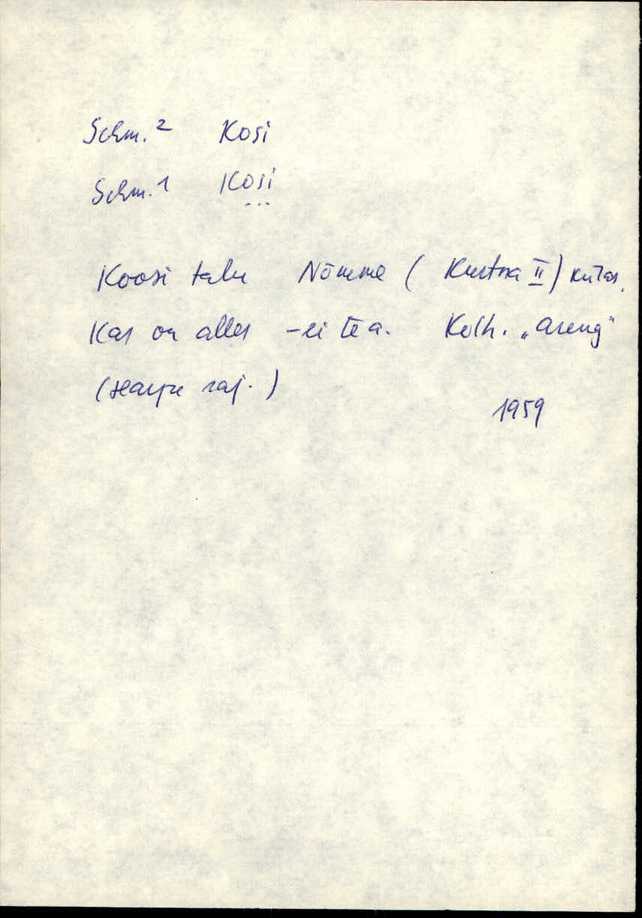 Schm.² Kosi
Schm.1 Kosi
Koosi talu Nõmme (Kurtna II) külas.
Kas on alles - ei tea. Kolh. „Areng"
(Harju raj.)
1959